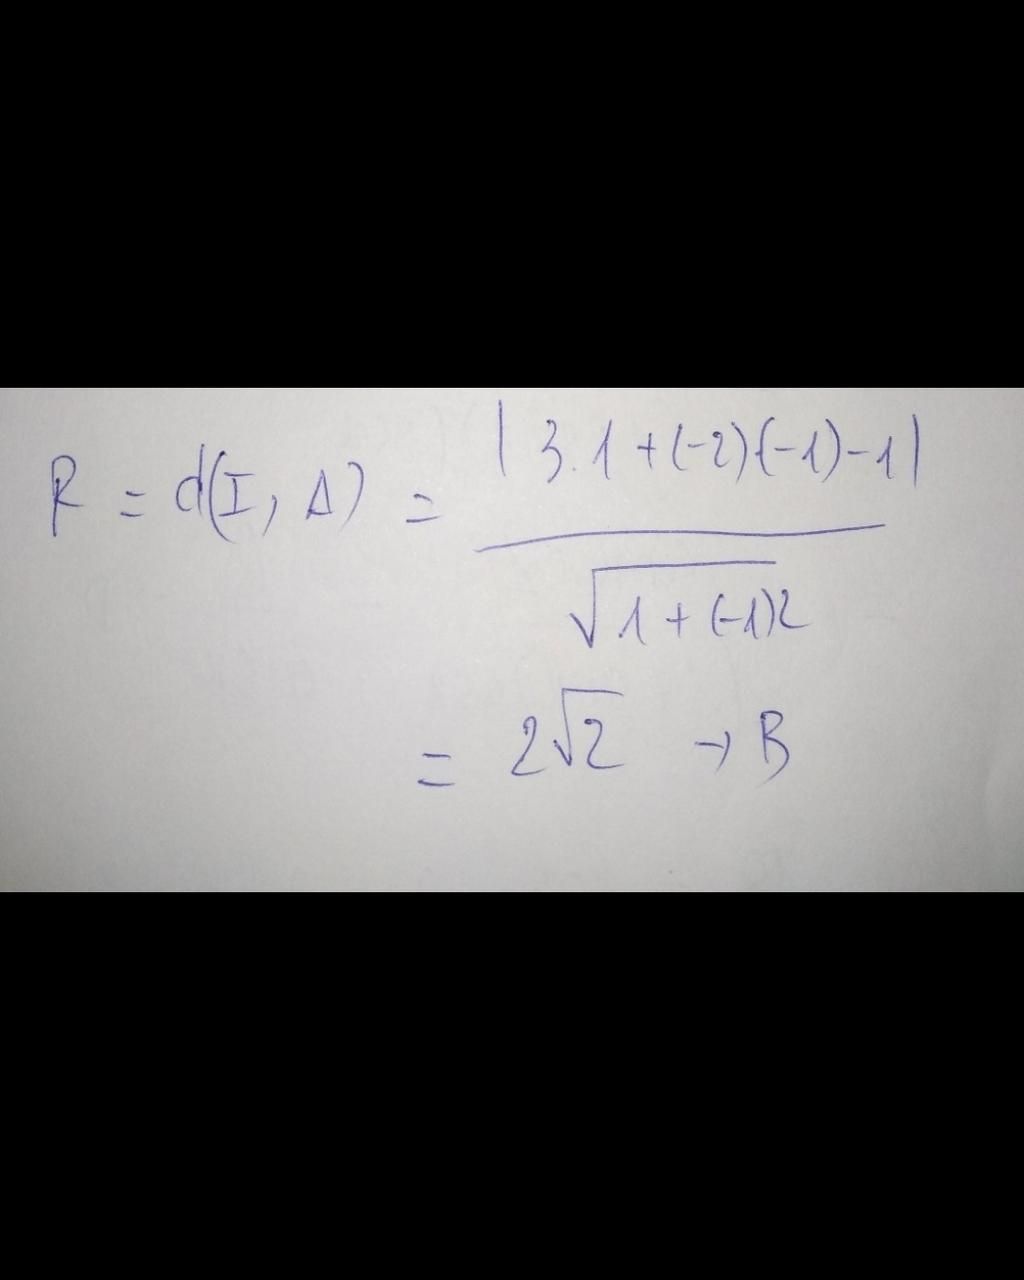 R = d(I, Δ) = |3.1 + (-2)(-1) - 1| / √1 + (-1)2
= 2√2 → B